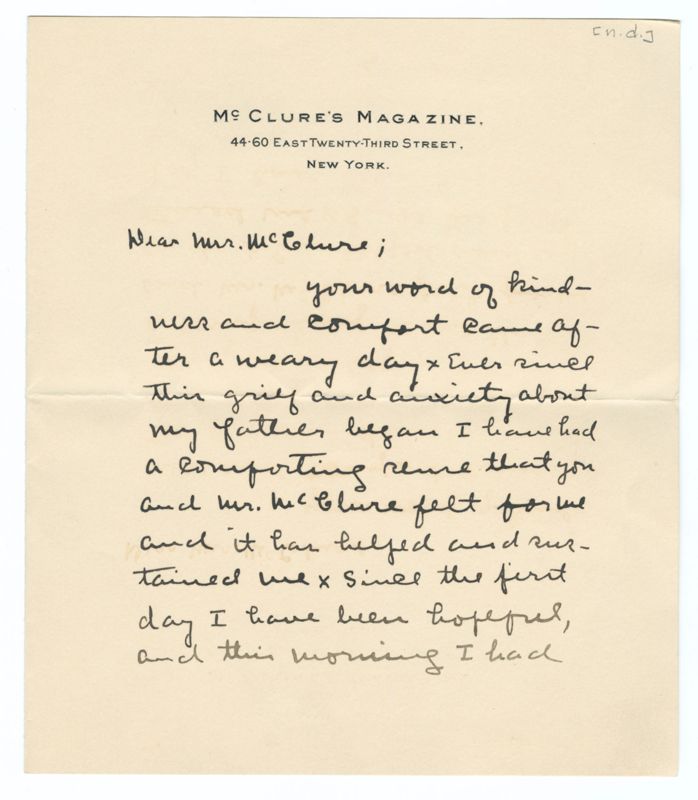 [n.d.]
McCLURE'S MAGAZINE.
44-60 EAST TWENTY-THIRD STREET,
NEW YORK.
Dear Mrs. McClure;
your word of kind-
ness and comfort came af-
ter a weary day x Ever since
this grief and anxiety about
my father began I have had
a comforting sense that you
and Mr. McClure felt for me
and it has helped and sus-
tained me x Since the first
day I have been hopeful,
and this morning I had